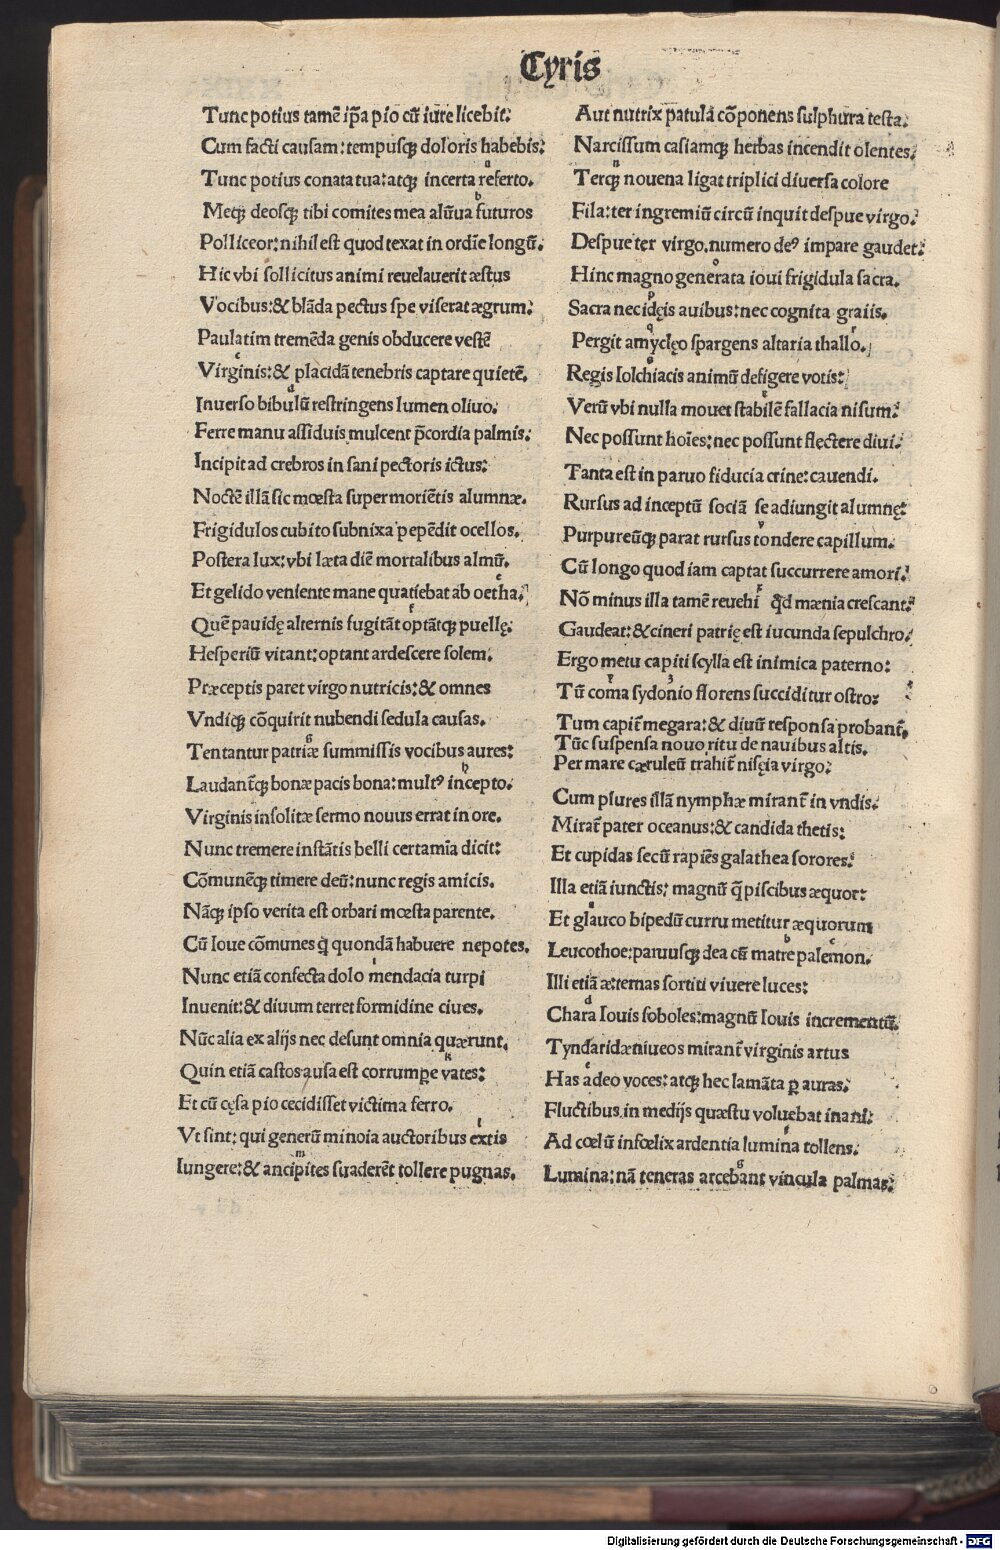 Cyris
Tunc potius tamē ip̄a pio cū iure licebit:
Cum facti causam: tempusq̢ doloris habebis:
Tunc potius conata tua: atq̢ incerta referto.
Meq̢ deosq̢ tibi comites mea alūua futuros
Polliceor: nihil est quod texat in ordīe longū.
Hic vbi sollicitus animi reuelauerit æstus
Vocibus: & blāda pectus spe viserat ægrum:
Paulatim tremēda genis obducere vestē
Virginis: & placidā tenebris captare quietē.
Inuerso bibulū restringens lumen oliuo.
Ferre manu assiduis mulcent p̄cordia palmis:
Incipit ad crebros in sani pectoris ictus:
Noctē illā sic mœsta super moriētis alumnæ.
Frigidulos cubito subnixa pepēdit ocellos.
Postera lux: vbi læta diē mortalibus almū.
Et gelido veniente mane quatiebat ab oetha:
Quē pauidę alternis fugitāt optātq̢ puellę:
Hesperiū vitant: optant ardescere solem.
Præceptis paret virgo nutricis: & omnes
Vndiq̢ cōquirit nubendi sedula causas.
Tentantur patriæ summissis vocibus aures:
Laudant̄q̢ bonæ pacis bona: multꝰ incepto.
Virginis insolitæ sermo nouus errat in ore.
Nunc tremere instātis belli certamīa dicit:
Cōmunēq̢ timere deū: nunc regis amicis.
Nāq̢ ipso verita est orbari mœsta parente.
Cū Ioue cōmunes q̄ quondā habuere nepotes.
Nunc etiā confecta dolo mendacia turpi
Inuenit: & diuum terret formidine ciues.
Nūc alia ex alijs nec desunt omnia quærunt.
Quin etiā castos ausa est corrumpe̱ vates:
Et cū cęsa pio cecidisset victima ferro.
Vt sint: qui generū minoia auctoribus extis
Iungere: & ancipites suaderēt tollere pugnas.
Aut nutrix patula cōponens sulphura testa:
Narcissum casiamq̢ herbas incendit olentes:
Terq̢ nouena ligat triplici diuersa colore
Fila: ter ingremiū circū inquit despue virgo:
Despue ter virgo. numero deꝰ impare gaudet:
Hinc magno generata ioui frigidula sacra.
Sacra nec idęis auibus: nec cognita graiis.
Pergit amyclęo spargens altaria thallo.
Regis Iolchiacis animū defigere votis:
Verū vbi nulla mouet stabilē fallacia nisum:
Nec possunt hoīes: nec possunt flectere diui:
Tanta est in paruo fiducia crine: cauendi.
Rursus ad inceptū sociā se adiungit alumnę:
Purpureūq̢ parat rursus tondere capillum.
Cū longo quod iam captat succurrere amori:
Nō minus illa tamē reuehi q̄d mænia crescant:
Gaudeat: & cineri patrię est iucunda sepulchro:
Ergo metu capiti scylla est inimica paterno:
Tū coma sydonio florens succiditur ostro:
Tum capit̄ megara: & diuū responsa probant̄.
Tūc suspensa nouo ritu de nauibus altis.
Per mare cæruleū trahit̄ nisęia virgo:
Cum plures illā nymphæ mirant̄ in vndis.
Mirat̄ pater oceanus: & candida thetis:
Et cupidas secū rapiēs galathea sorores:
Illa etiā iunctis: magnū q̄ piscibus æquor:
Et glauco bipedū curru metitur æquorum
Leucothoe: paruusq̢ dea cū matre palemon.
Illi etiā æternas sortiti viuere luces:
Chara Iouis soboles: magnū Iouis incrementū.
Tyndaridæ niueos mirant̄ virginis artus
Has adeo voces: atq̢ hec lamāta p̱ auras:
Fluctibus in medijs quæstu voluebat inani:
Ad cœlū infœlix ardentia lumina tollens:
Lumina: nā teneras arcebant vincula palmas:
Digitalisierung gefördert durch die Deutsche Forschungsgemeinschaft - DFG